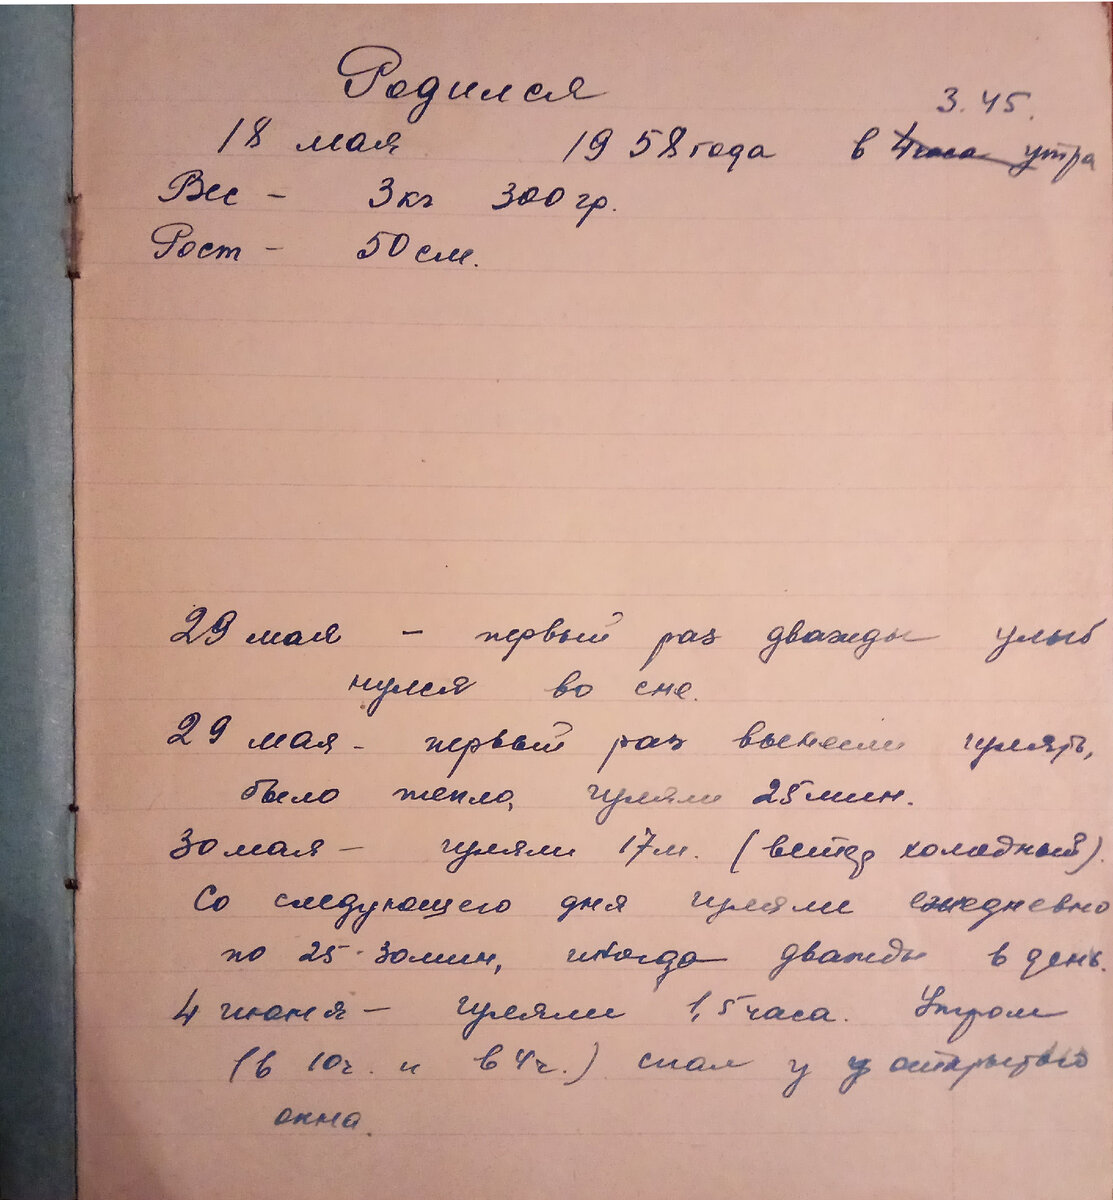 Родился
3.45.
18 мая 1958 года в 4 часа утра
Вес - 3 кг 300 гр.
Рост - 50 см.
29 мая - первый раз дважды улыб
нулся во сне.
29 мая - первый раз вынесли гулять,
было тепло, гуляли 25 мин.
30 мая - гуляли 17 м. (ветер холодный).
Со следующего дня гуляли ежедневно
по 25-30 мин, иногда дважды в день.
4 июня - гуляли 1,5 часа. Утром
(в 10 ч. и в 4 ч.) спал у у открытого
окна.